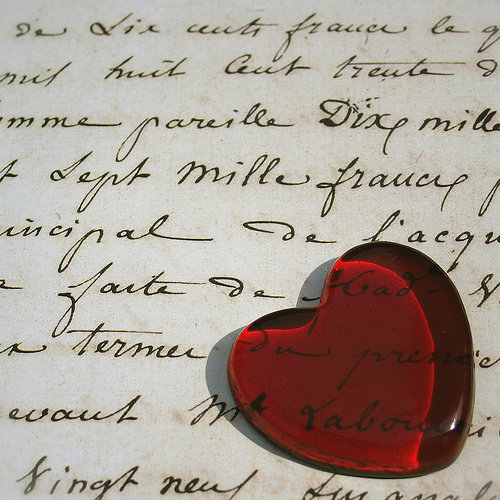 de Six cents francs le
mil huit Cent trente
omme pareille Dix mille
t Sept mille francs
incipal de l'acqu
faite de Mad.
termes du premie
evant Me Labou
Vingt neuf